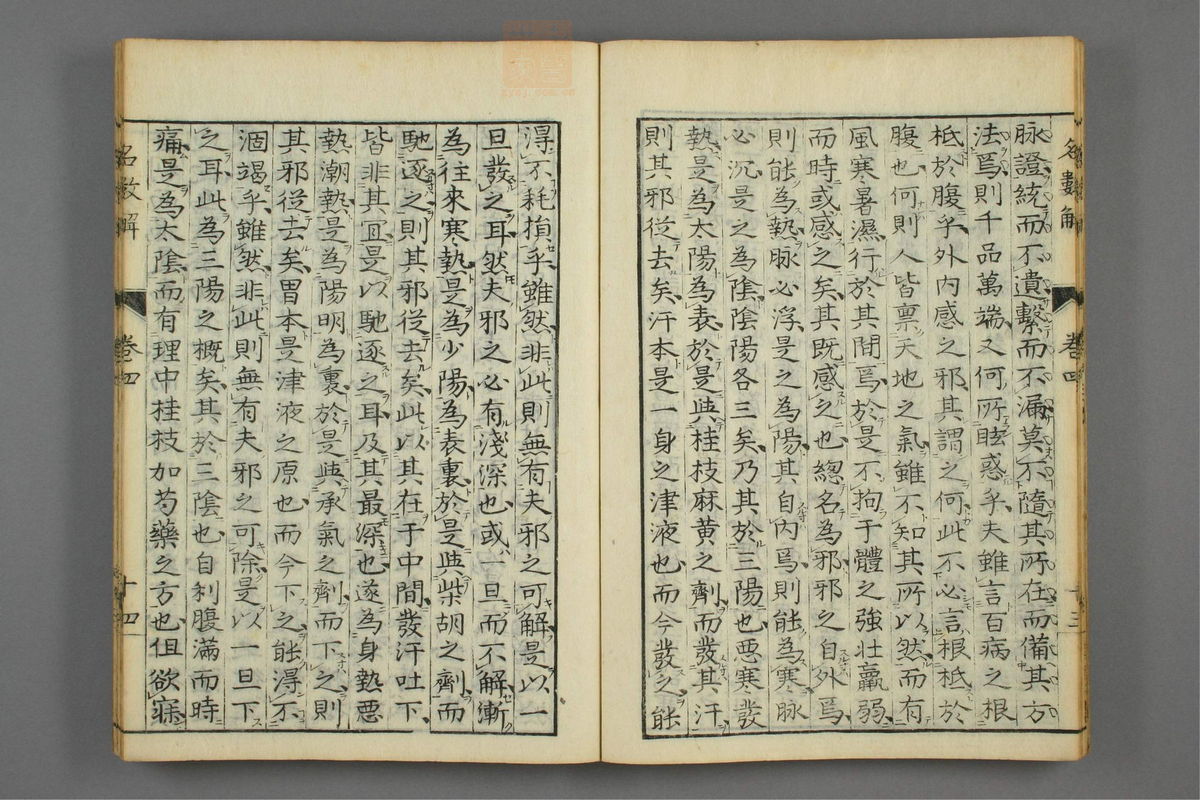 名數解 卷四 十三
脉證統而不遺繫而不漏莫不隨其所在而備其方
法焉則千品萬端又何所眩惑乎夫雖言百病之根
柢於腹乎外内感之邪其謂之何此不必言根柢於
腹也何則人皆稟天地之氣雖不知其所以然而有
風寒暑濕行於其間焉於是不拘于體之強壯羸弱
而時或感之矣其既感之也總名為邪邪之自外焉
則能為熱脉必浮是之為陽其自内焉則能為寒脉
必沉是之為陰陰陽各三矣乃其於三陽也悪寒發
熱是為太陽為表於是與桂枝麻黄之劑而發其汗
則其邪從去矣汗本是一身之津液也而今發之能
得不耗損乎雖然非此則無有夫邪之可解是以一
旦發之耳然夫邪之必有淺深也或一旦而不解漸
為往來寒熱是為少陽為表裏於是與柴胡之劑而
馳逐之則其邪從去矣此以其在于中間發汗吐下
皆非其冝是以馳逐之耳及其最深也遂為身熱悪
熱潮熱是為陽明為裏於是與承氣之劑而下之則
其邪從去矣胃本是津液之原也而今下之能得不
涸竭乎雖然非此則無有夫邪之可除是以一旦下
之耳此為三陽之概矣其於三陰也自利腹滿而時
痛是為太陰而有理中桂枝加芍藥之方也但欲寐
名數解 卷四 十四